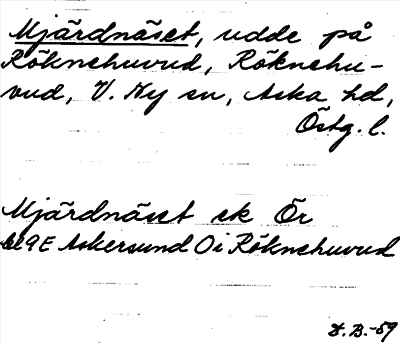 Mjärdnäset, udde på
Röknehuvud, Röknehu-
vud, V. Ny sn, Aska hd,
Östg. l.
Mjärdnäset ek Ör
bl 9E Askersund O i Röknehuvud
B.-59